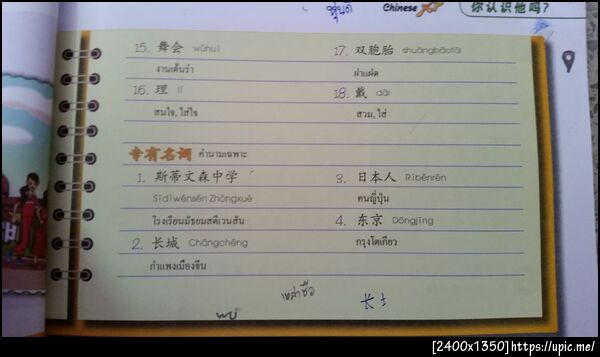 Chinese XP
你认识他吗?
15. 舞会 wǔhuì
งานเต้นรำ
16. 理 lǐ
สนใจ, ใส่ใจ
17. 双胞胎 shuāngbāotāi
ฝาแฝด
18. 戴 dài
สวม, ใส่
专有名词 คำนามเฉพาะ
1. 斯蒂文森中学
Sīdìwénsēn Zhōngxué
โรงเรียนมัธยมสตีเวนสัน
2. 长城 Chángchéng
กำแพงเมืองจีน
3. 日本人 Rìběnrén
คนญี่ปุ่น
4. 东京 Dōngjīng
กรุงโตเกียว
[2400x1350] https://upic.me/